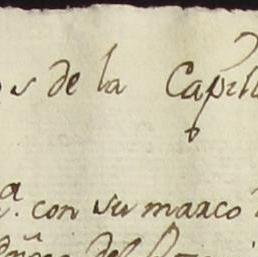 s de la Capill
a. con su marco
del